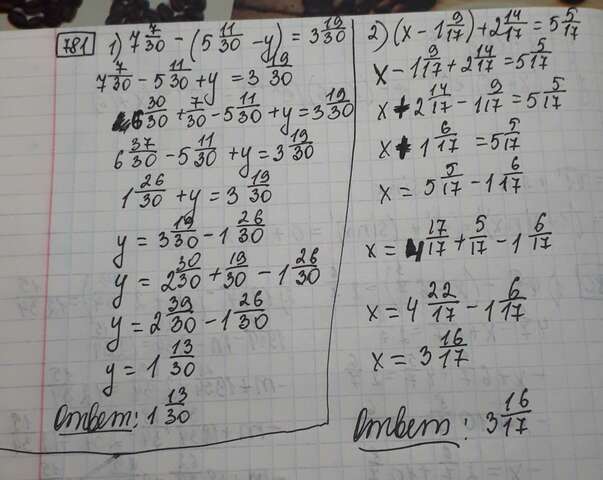 781 1) 7 7/30 − (5 11/30 − y) = 3 19/30
7 7/30 − 5 11/30 + y = 3 19/30
6 30/30 + 7/30 − 5 11/30 + y = 3 19/30
6 37/30 − 5 11/30 + y = 3 19/30
1 26/30 + y = 3 19/30
y = 3 19/30 − 1 26/30
y = 2 30/30 + 19/30 − 1 26/30
y = 2 39/30 − 1 26/30
y = 1 13/30
Ответ: 1 13/30
2) (x − 1 9/17) + 2 14/17 = 5 5/17
x − 1 9/17 + 2 14/17 = 5 5/17
x + 2 14/17 − 1 9/17 = 5 5/17
x + 1 6/17 = 5 5/17
x = 5 5/17 − 1 6/17
x = 4 17/17 + 5/17 − 1 6/17
x = 4 22/17 − 1 6/17
x = 3 16/17
Ответ: 3 16/17